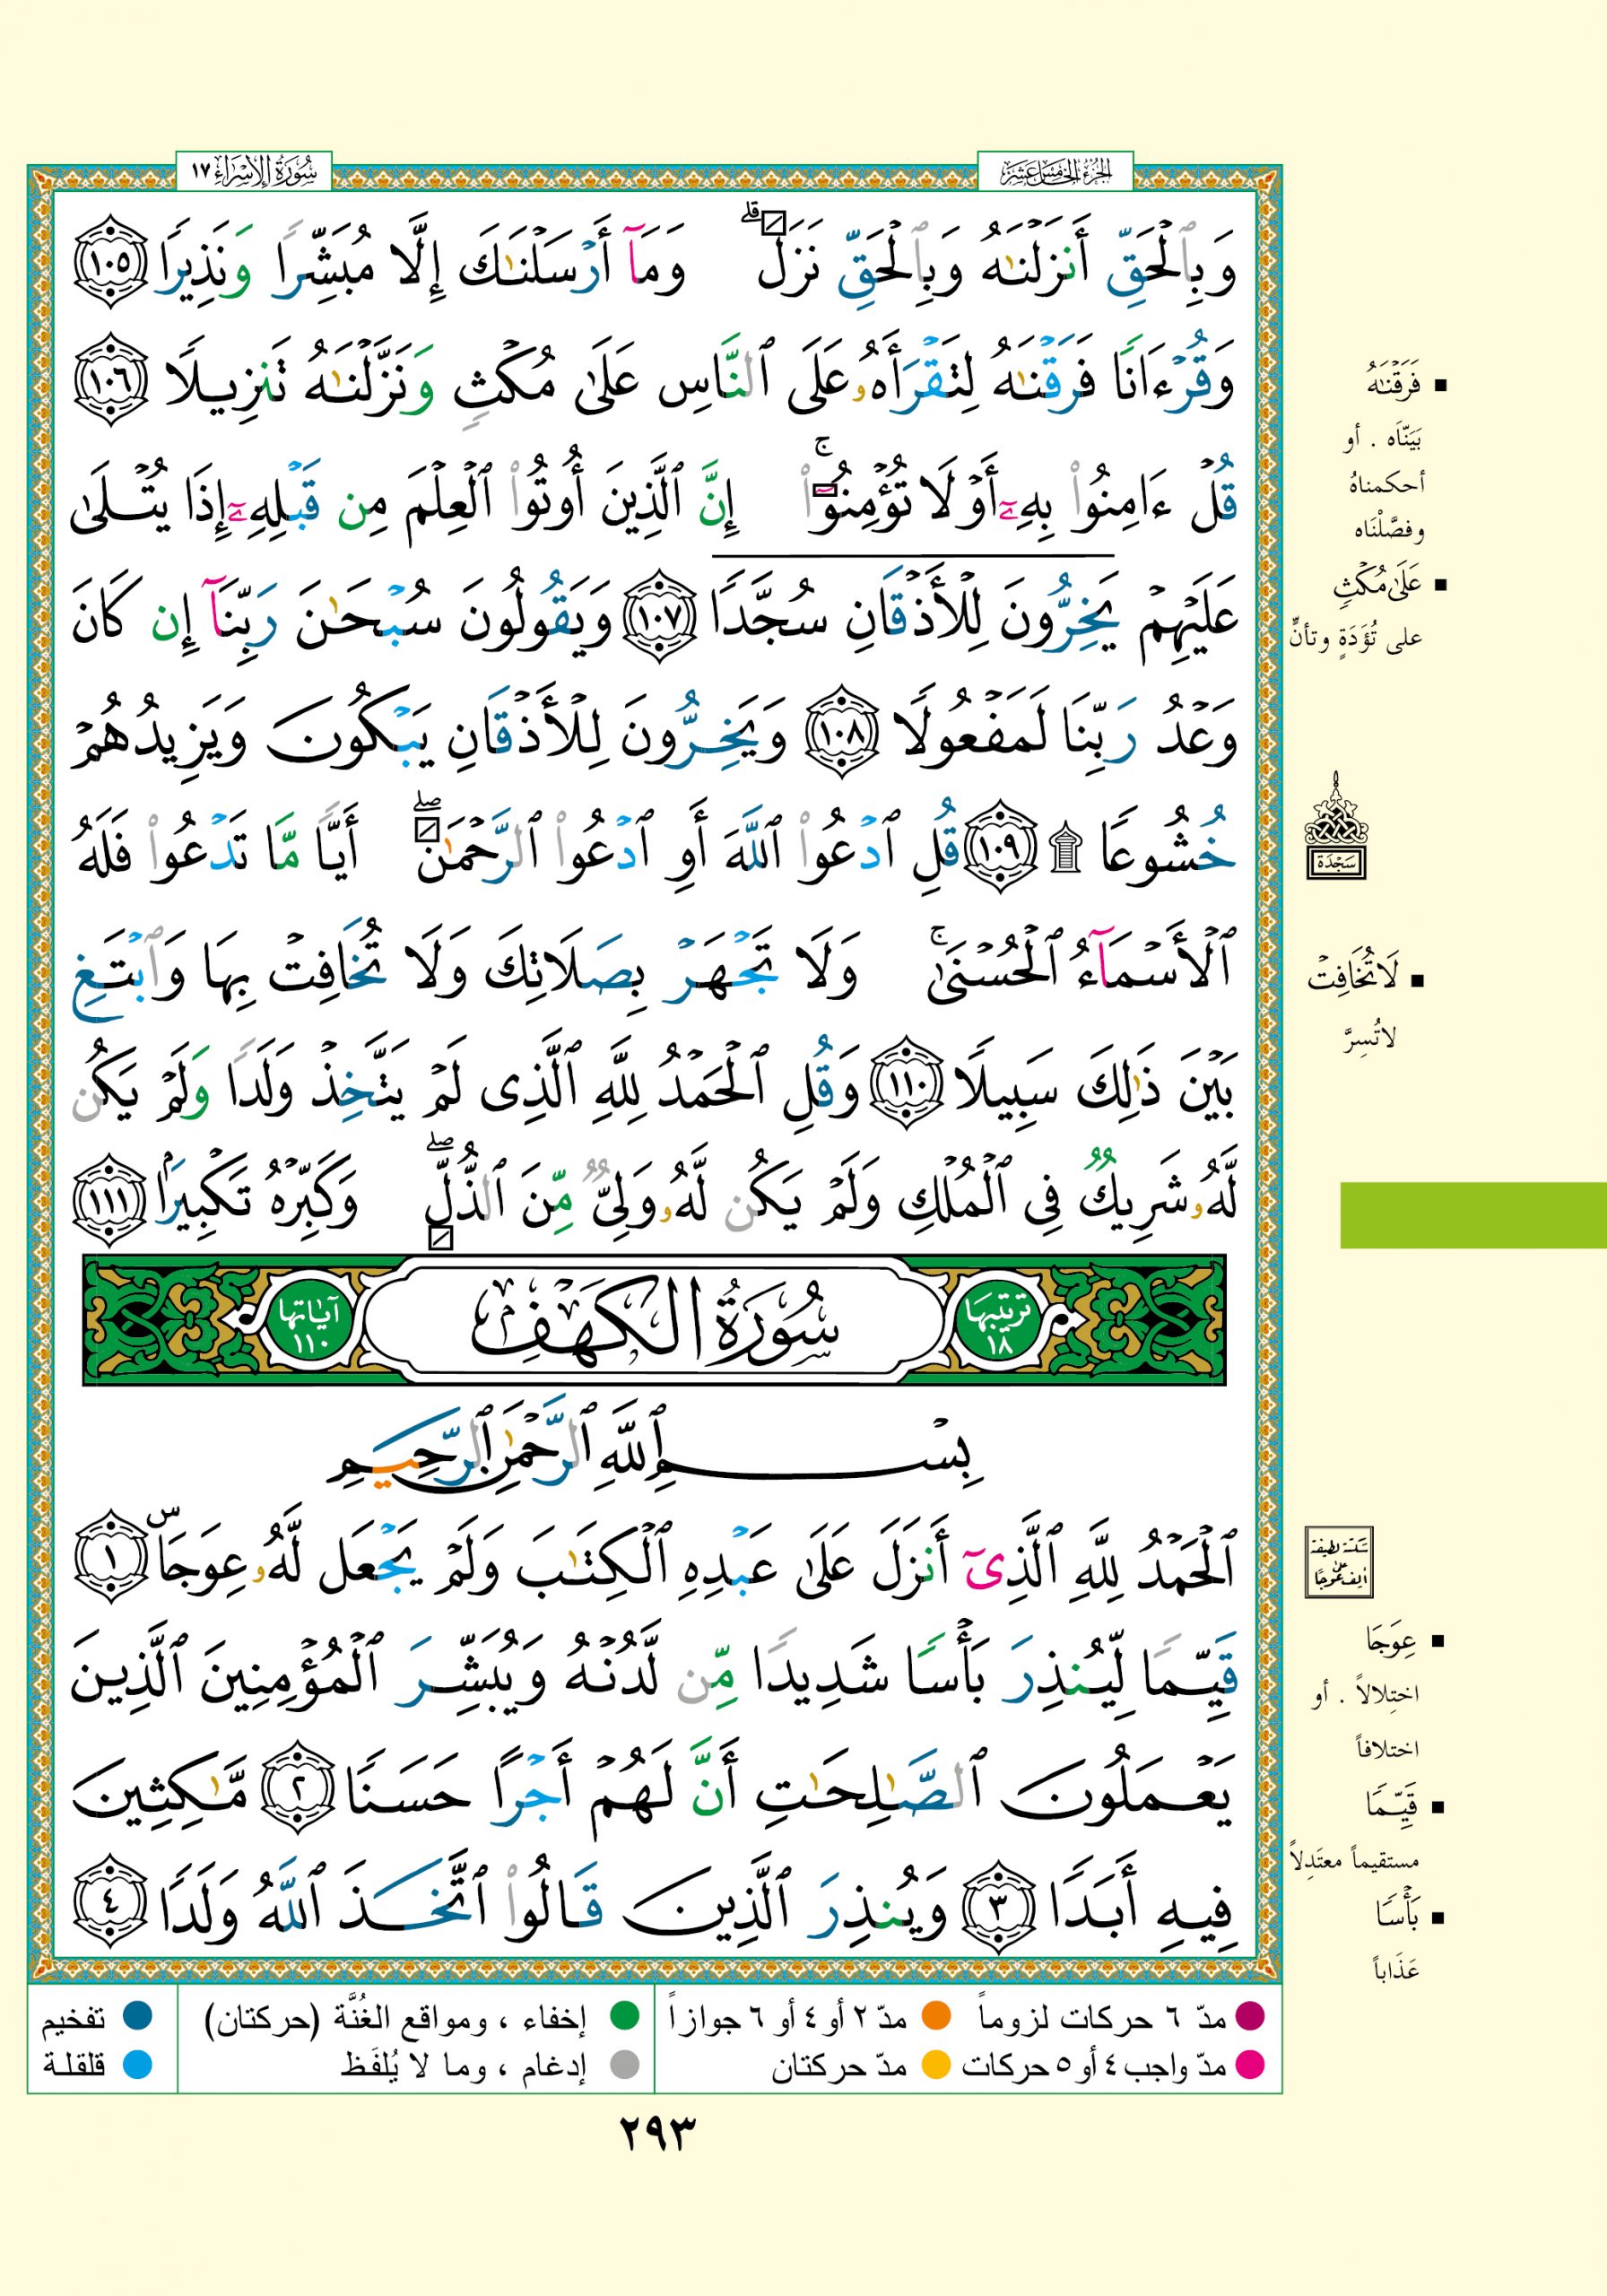 سُورَةُ الإِسْرَاءِ ١٧
الجُزْءُ الخَامِسَ عَشَرَ
وَبِٱلْحَقِّ أَنزَلْنَـٰهُ وَبِٱلْحَقِّ نَزَلَ ۗ وَمَآ أَرْسَلْنَـٰكَ إِلَّا مُبَشِّرًا وَنَذِيرًا ١٠٥
وَقُرْءَانًا فَرَقْنَـٰهُ لِتَقْرَأَهُۥ عَلَى ٱلنَّاسِ عَلَىٰ مُكْثٍ وَنَزَّلْنَـٰهُ تَنزِيلًا ١٠٦
قُلْ ءَامِنُوا۟ بِهِۦٓ أَوْ لَا تُؤْمِنُوٓا۟ ۚ إِنَّ ٱلَّذِينَ أُوتُوا۟ ٱلْعِلْمَ مِن قَبْلِهِۦٓ إِذَا يُتْلَىٰ
عَلَيْهِمْ يَخِرُّونَ لِلْأَذْقَانِ سُجَّدًا ١٠٧ وَيَقُولُونَ سُبْحَـٰنَ رَبِّنَآ إِن كَانَ
وَعْدُ رَبِّنَا لَمَفْعُولًا ١٠٨ وَيَخِرُّونَ لِلْأَذْقَانِ يَبْكُونَ وَيَزِيدُهُمْ
خُشُوعًا ۩ ١٠٩ قُلِ ٱدْعُوا۟ ٱللَّهَ أَوِ ٱدْعُوا۟ ٱلرَّحْمَـٰنَ ۖ أَيًّا مَّا تَدْعُوا۟ فَلَهُ
ٱلْأَسْمَآءُ ٱلْحُسْنَىٰ ۚ وَلَا تَجْهَرْ بِصَلَاتِكَ وَلَا تُخَافِتْ بِهَا وَٱبْتَغِ
بَيْنَ ذَٰلِكَ سَبِيلًا ١١٠ وَقُلِ ٱلْحَمْدُ لِلَّهِ ٱلَّذِى لَمْ يَتَّخِذْ وَلَدًا وَلَمْ يَكُن
لَّهُۥ شَرِيكٌ فِى ٱلْمُلْكِ وَلَمْ يَكُن لَّهُۥ وَلِىٌّ مِّنَ ٱلذُّلِّ ۖ وَكَبِّرْهُ تَكْبِيرًۢا ١١١
ترتيبها ١٨
سُورَةُ الْكَهْفِ
آياتها ١١٠
بِسْمِ ٱللَّهِ ٱلرَّحْمَـٰنِ ٱلرَّحِيمِ
ٱلْحَمْدُ لِلَّهِ ٱلَّذِىٓ أَنزَلَ عَلَىٰ عَبْدِهِ ٱلْكِتَـٰبَ وَلَمْ يَجْعَل لَّهُۥ عِوَجَا ۜ ١
قَيِّمًا لِّيُنذِرَ بَأْسًا شَدِيدًا مِّن لَّدُنْهُ وَيُبَشِّرَ ٱلْمُؤْمِنِينَ ٱلَّذِينَ
يَعْمَلُونَ ٱلصَّـٰلِحَـٰتِ أَنَّ لَهُمْ أَجْرًا حَسَنًا ٢ مَّـٰكِثِينَ
فِيهِ أَبَدًا ٣ وَيُنذِرَ ٱلَّذِينَ قَالُوا۟ ٱتَّخَذَ ٱللَّهُ وَلَدًا ٤
فَرَقْنَـٰهُ
بَيَنَّاه . أو
أحكمناهُ
وفصَّلْنَاه
عَلَىٰ مُكْثٍ
على تُؤَدَةٍ وتأنٍّ
سَجْدَة
لَا تُخَافِتْ
لاتُسِرَّ
سكتة لطيفة
على
ألِف عوجًا
عِوَجَا
اختِلالاً . أو
اختلافاً
قَيِّمًا
مستقيماً معتَدِلاً
بَأْسًا
عَذَاباً
مدّ ٦ حركات لزوماً
مدّ ٢ أو ٤ أو ٦ جوازاً
إخفاء ، ومواقع الغُنَّة (حركتان)
تفخيم
مدّ واجب ٤ أو ٥ حركات
مدّ حركتان
إدغام ، وما لا يُلفَظ
قلقلة
٢٩٣